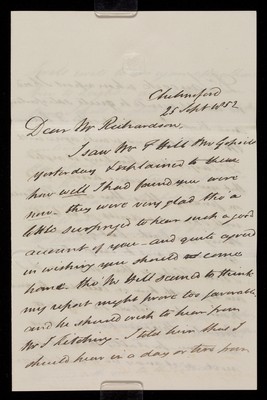 Chelmsford
25 Sept 1852
Dear Mr Richardson,
I saw Mr F Hill &
yesterday & explained to them
how well I had found you were
now. they were very glad tho' a
little surprised to hear such a good
account of you and quite agreed
in wishing you should come
home tho' Mr Hill seemed to think
my report might prove too favorable
and he should wish to hear from
Mr I Kitching. I told him that I
should hear in a day or two from